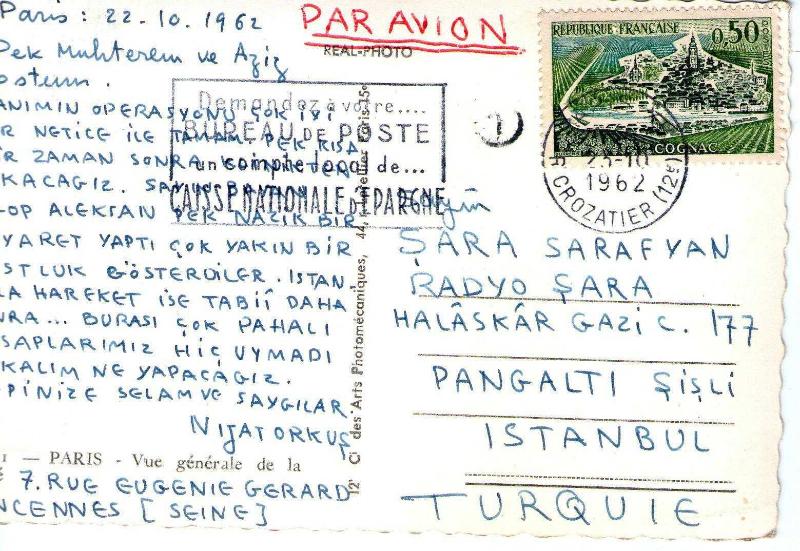 Paris: 22.10.1962
Pek Muhterem ve Aziz
ostum.
ANIMIN OPERASYONU ÇOK İYİ
R NETİCE İLE TAMAM. PEK KISA
İR ZAMAN SONRA
KACAĞIZ.
LOP ALEKSAN PEK NAZİK BİR
YARET YAPTI ÇOK YAKIN BİR
ST LUK GÖSTERDİLER. ISTAN
LA HAREKET İSE TABİİ DAHA
NRA... BURASI ÇOK PAHALI
SAPLARIMIZ HİÇ UYMADI
KALIM NE YAPACAĞIZ.
PİNİZE SELAM VE SAYGILAR.
NIJAT ORKUŞ
1 — PARIS - Vue générale de la
7. RUE EUGENIE GERARD
NCENNES [SEINE]
PAR AVION
REAL-PHOTO
Demandez à votre....
BUREAU DE POSTE
un compte-loog de...
CAISSE NATIONALE D'EPARGNE
1
REPUBLIQUE FRANÇAISE
0,50
POSTES
COGNAC
23-10
1962
CROZATIER (12e)
12 Ci des Arts Photomécaniques, 44, Paris-15e
Sayın
ŞARA SARAFYAN
RADYO ŞARA
HALÂSKÂR GAZİ C. 177
PANGALTI ŞİŞLİ
ISTANBUL
TURQUIE